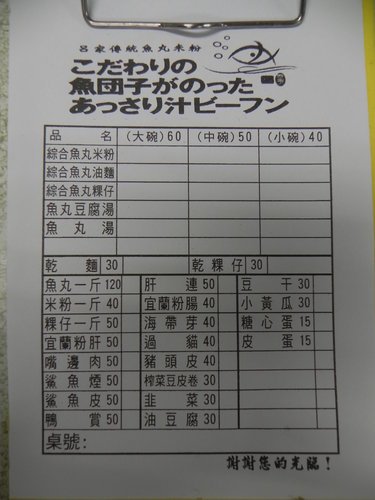 呂家傳統魚丸米粉
こだわりの
魚団子がのった
あっさり汁ビーフン
品名 (大碗)60 (中碗)50 (小碗)40
綜合魚丸米粉
綜合魚丸油麵
綜合魚丸粿仔
魚丸豆腐湯
魚丸湯
乾麵 30 乾粿仔 30
魚丸一斤 120 肝連 50 豆干 30
米粉一斤 40 宜蘭粉腸 40 小黃瓜 30
粿仔一斤 50 海帶芽 40 糖心蛋 15
宜蘭粉肝 50 過貓 40 皮蛋 15
嘴邊肉 50 豬頭皮 40
鯊魚煙 50 榨菜豆皮卷 30
鯊魚皮 50 韭菜 30
鴨賞 50 油豆腐 30
桌號:
謝謝您的光臨!